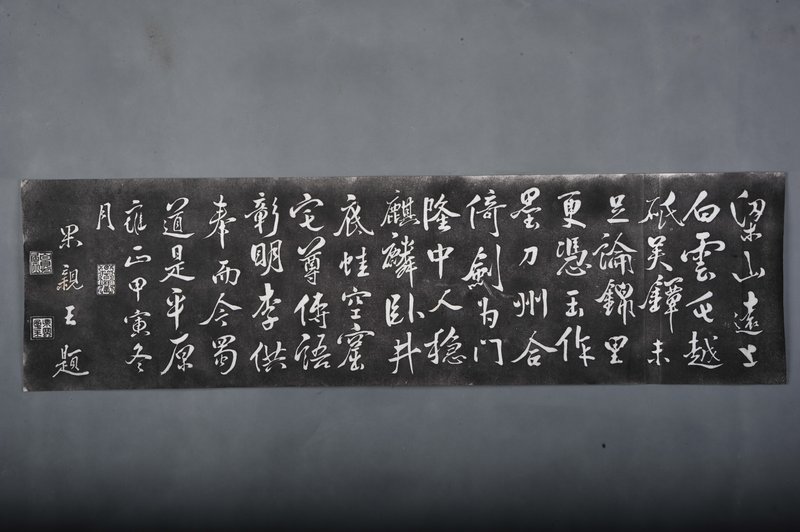 梁山遠上
白雲屯越
砥吴鐔未
足論錦里
更憑玉作
壘刀州合
倚劍为門
隆中人穏
麒麟卧井
底蛙空窟
宅尊傳語
彰明李供
奉而今蜀
道是平原
雍正甲寅冬
月
果親王題